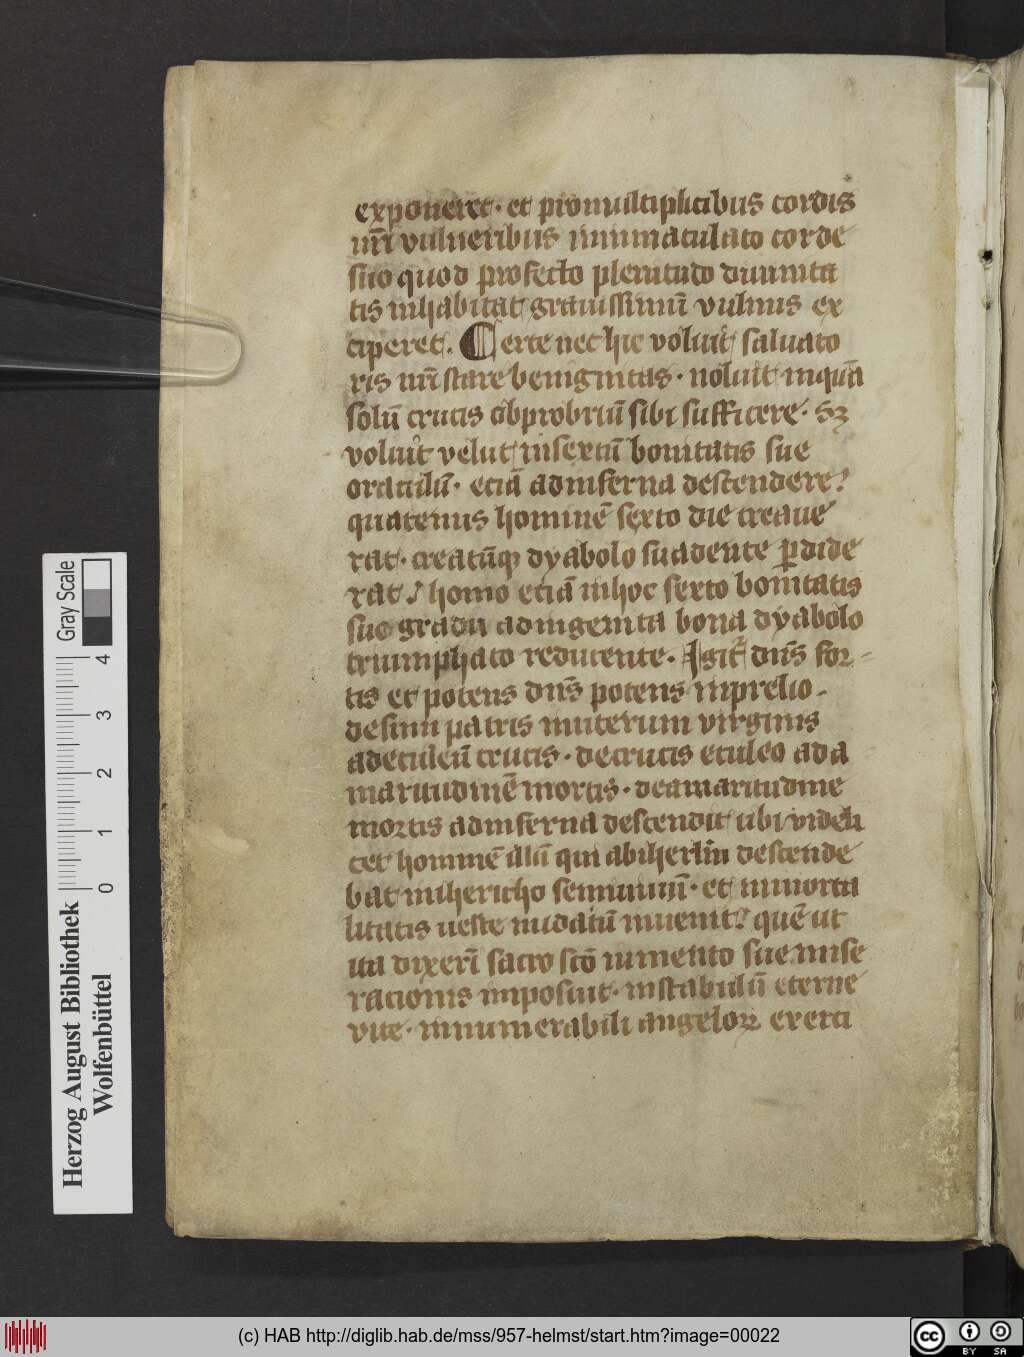 exponeret · et promultiplicibus cordis
nr̄i vulneribus inmaculato corde
suo quod profecto plenitudo diuinita
tis inhabitat grauissimū vulnus ex
ciperet. Certe nec hic voluit saluato
ris nr̄i stare benignitas · noluit inquā
solū crucis obprobriū sibi sufficere · Sꝫ
voluit velut insextū bonitatis sue
oraculū · etiā adinferna descendere?
quatenus hominē sexto die creaue
rat · creatūqꝫ dyabolo suadente ꝑdide
rat? homo etiā inhoc sexto bonitatis
sue gradu adingenita bona dyabolo
triumphato reducente. Igit᷑ dn̄s for-
tis et potens dn̄s potens inprelio.
desinu patris inuterum virginis
adeculeū crucis · decrucis eculeo ada
maritudinē mortis · deamaritudine
mortis adinferna descendit ubi videli
cet hominē illū qui abiherl̄m descende
bat inihericho semiuiuū · et inmorta
litatis ueste nudatū inuenit? quē ut
ita dixerī sacro scō iumento sue mise
racionis imposuit · instabulū eterne
vite · innumerabili angeloꝝ exerci
Gray Scale
4
3
2
1
0
Herzog August Bibliothek
Wolfenbüttel
(c) HAB http://diglib.hab.de/mss/957-helmst/start.htm?image=00022
cc BY SA